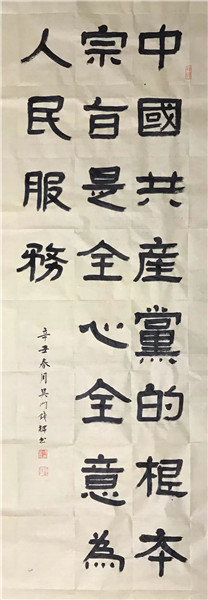 中國共產黨的根本
宗旨是全心全意為
人民服務
辛丑春月吳門